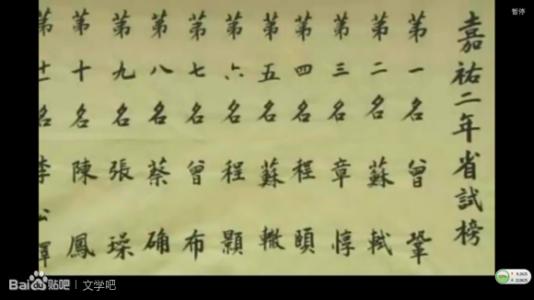 暂停
嘉祐二年省試榜
第一名 曾鞏
第二名 蘇軾
第三名 章惇
第四名 程頤
第五名 蘇轍
第六名 程顥
第七名 曾布
第八名 蔡确
第九名 張璪
第十名 陳鳳
第十一名 李
Bai贴吧 | 文学吧